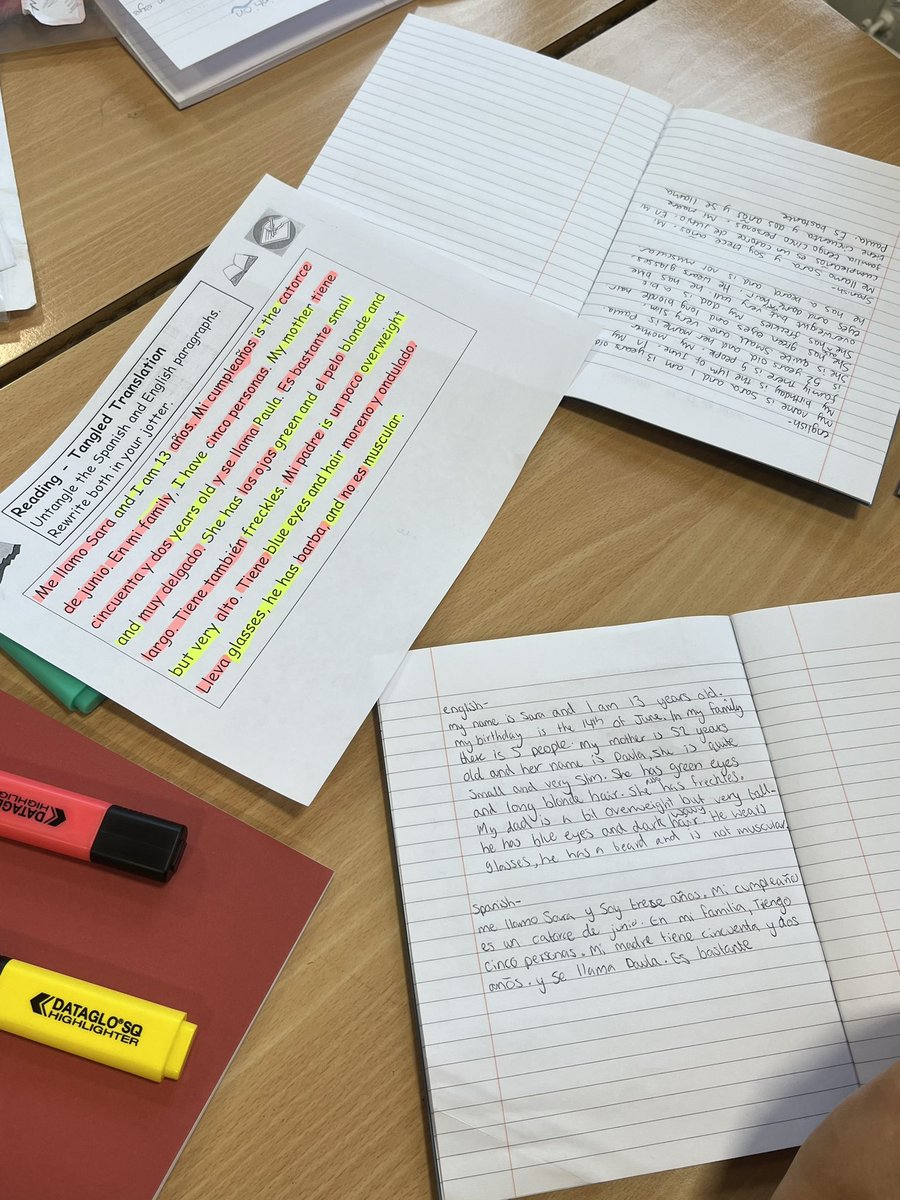 Reading – Tangled Translation
Untangle the Spanish and English paragraphs.
Rewrite both in your jotter.
Me llamo Sara and I am 13 años. Mi cumpleaños is the catorce
de junio. En mi family, I have cinco personas. My mother tiene
cincuenta y dos years old y se llama Paula. Es bastante small
and muy delgado. She has los ojos green and el pelo blonde and
largo. Tiene también freckles. Mi padre is un poco overweight
but very alto. Tiene blue eyes and hair moreno y ondulado.
Lleva glasses, he has barba, and no es muscular.
english-
my name is Sara and I am 13 years old
my birthday is the 14th of June. In my
family there is 5 people. my mother
is 52 years old and her name is Paula.
She is quite small and very slim.
She has green eyes and long blonde hair
freckles. my dad is a bit
overweight but very tall. he has blue
eyes and dark hair. he wears glasses.
has a beard and is not muscular
Spanish-
Me llamo Sara y soy trece años. Mi
cumpleaños es un catorce de junio. En mi
familia tengo cinco personas. Mi madre
tiene cincuenta y dos años y se llama
Paula. Es bastante
english-
my name is Sara and I am 13 years old.
my birthday is the 14th of June. In my family
there is 5 people. my mother is 52 years
old and her name is Paula, she is quite
small and very slim. She has green eyes
and long blonde hair. She also has freckles.
My dad is a bit overweight but very tall-
he has blue eyes and dark wavy hair. He wears
glasses, he has a beard and is not muscular.
Spanish-
me llamo Sara y soy trese años. Mi cumpleaños
es un catorce de junio. En mi familia, Tiengo
cinco personas. Mi madre tiene cincuenta y dos
años. y se llama Paula. Es bastante
DATAGLO
HIGHLIGHTER
DATAGLO® SQ
HIGHLIGHTER